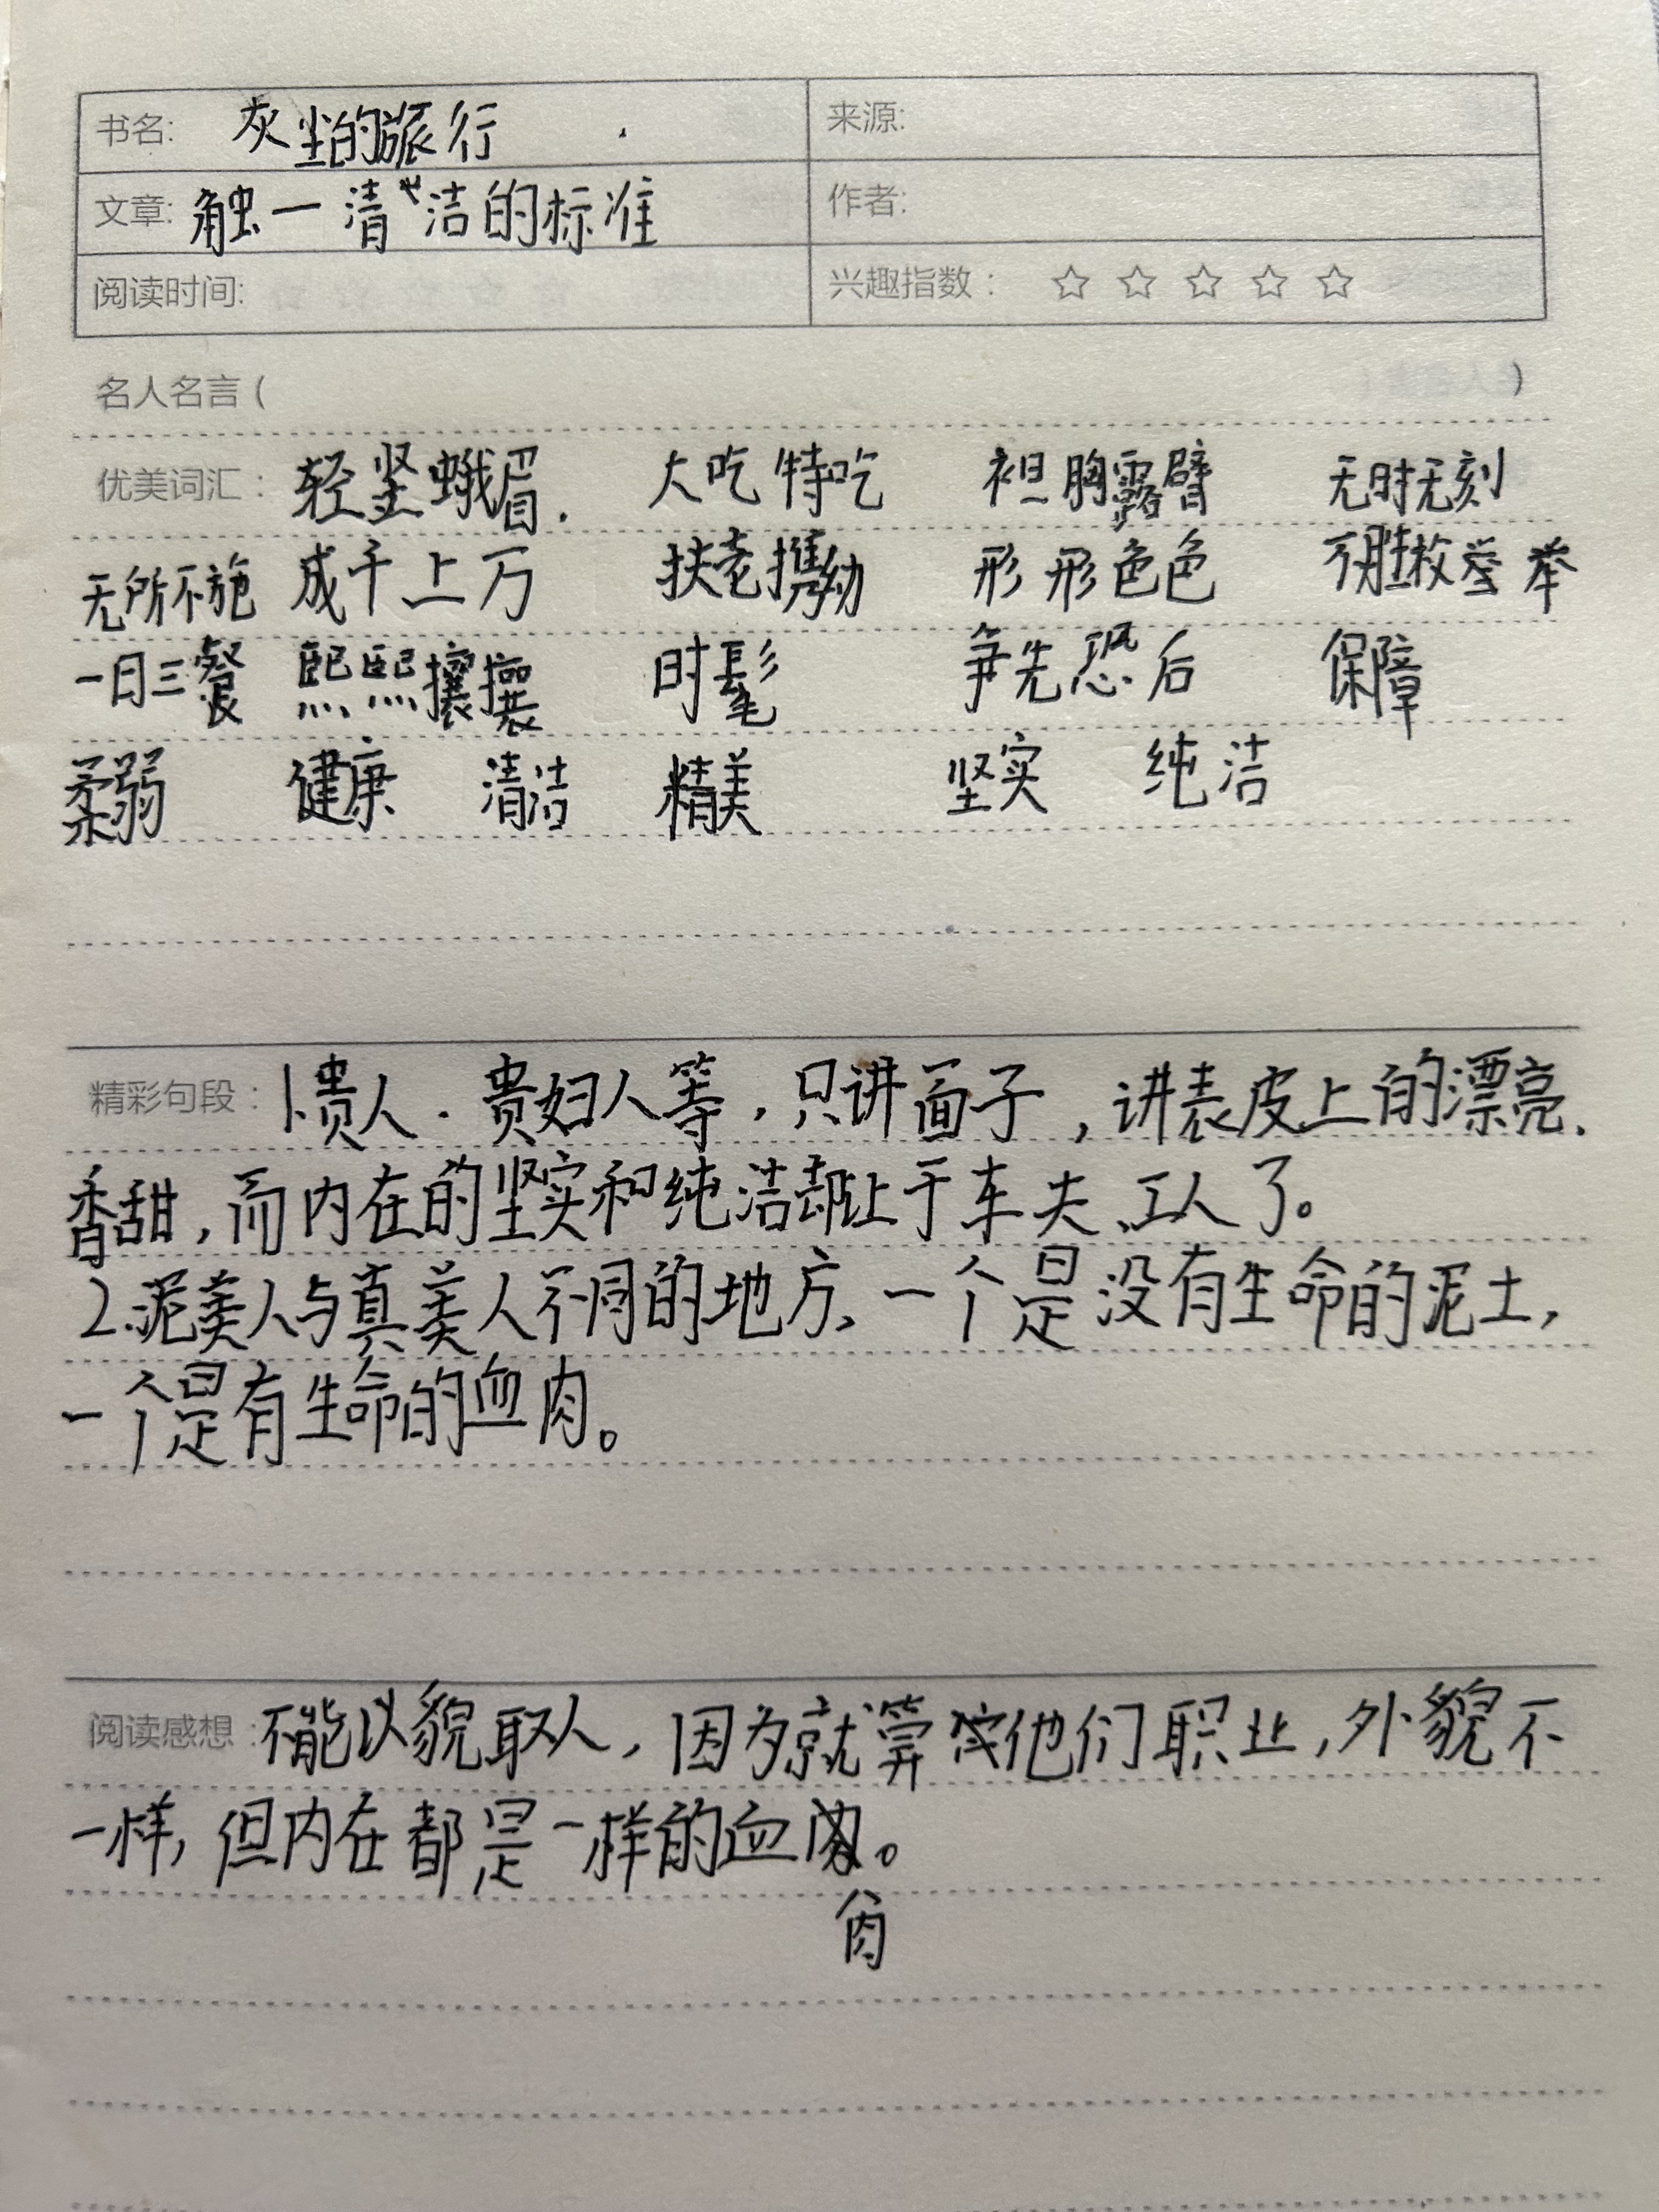 书名: 灰尘的旅行 来源:
文章: 触一清洁的标准 作者:
阅读时间: 兴趣指数: ☆ ☆ ☆ ☆ ☆
名人名言 ( )
优美词汇: 轻坚蛾眉. 大吃特吃 袒胸露臂 无时无刻
无所不施 成千上万 扶老携幼 形形色色 不胜枚举 举
一日三餐 熙熙攘攘 时髦 争先恐后 保障
柔弱 健康 清洁 精美 坚实 纯洁
精彩句段: 1.贵人.贵妇人等,只讲面子,讲表皮上的漂亮.
香甜,而内在的坚实和纯洁却让于车夫、工人了。
2.泥美人与真美人不同的地方、一个是没有生命的泥土,
一个是有生命的血肉。
阅读感想: 不能以貌取人,因为就算他们职业,外貌不
一样,但内在都是一样的血肉。
肉